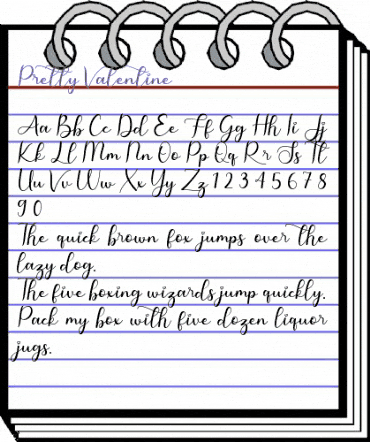 Pretty Valentine
Aa Bb Cc Dd Ee Ff Gg Hh Ii Jj
Kk Ll Mm Nn Oo Pp Qq Rr Ss Tt
Uu Vv Ww Xx Yy Zz 1 2 3 4 5 6 7 8
9 0
The quick brown fox jumps over the
lazy dog.
The five boxing wizards jump quickly.
Pack my box with five dozen liquor
jugs.